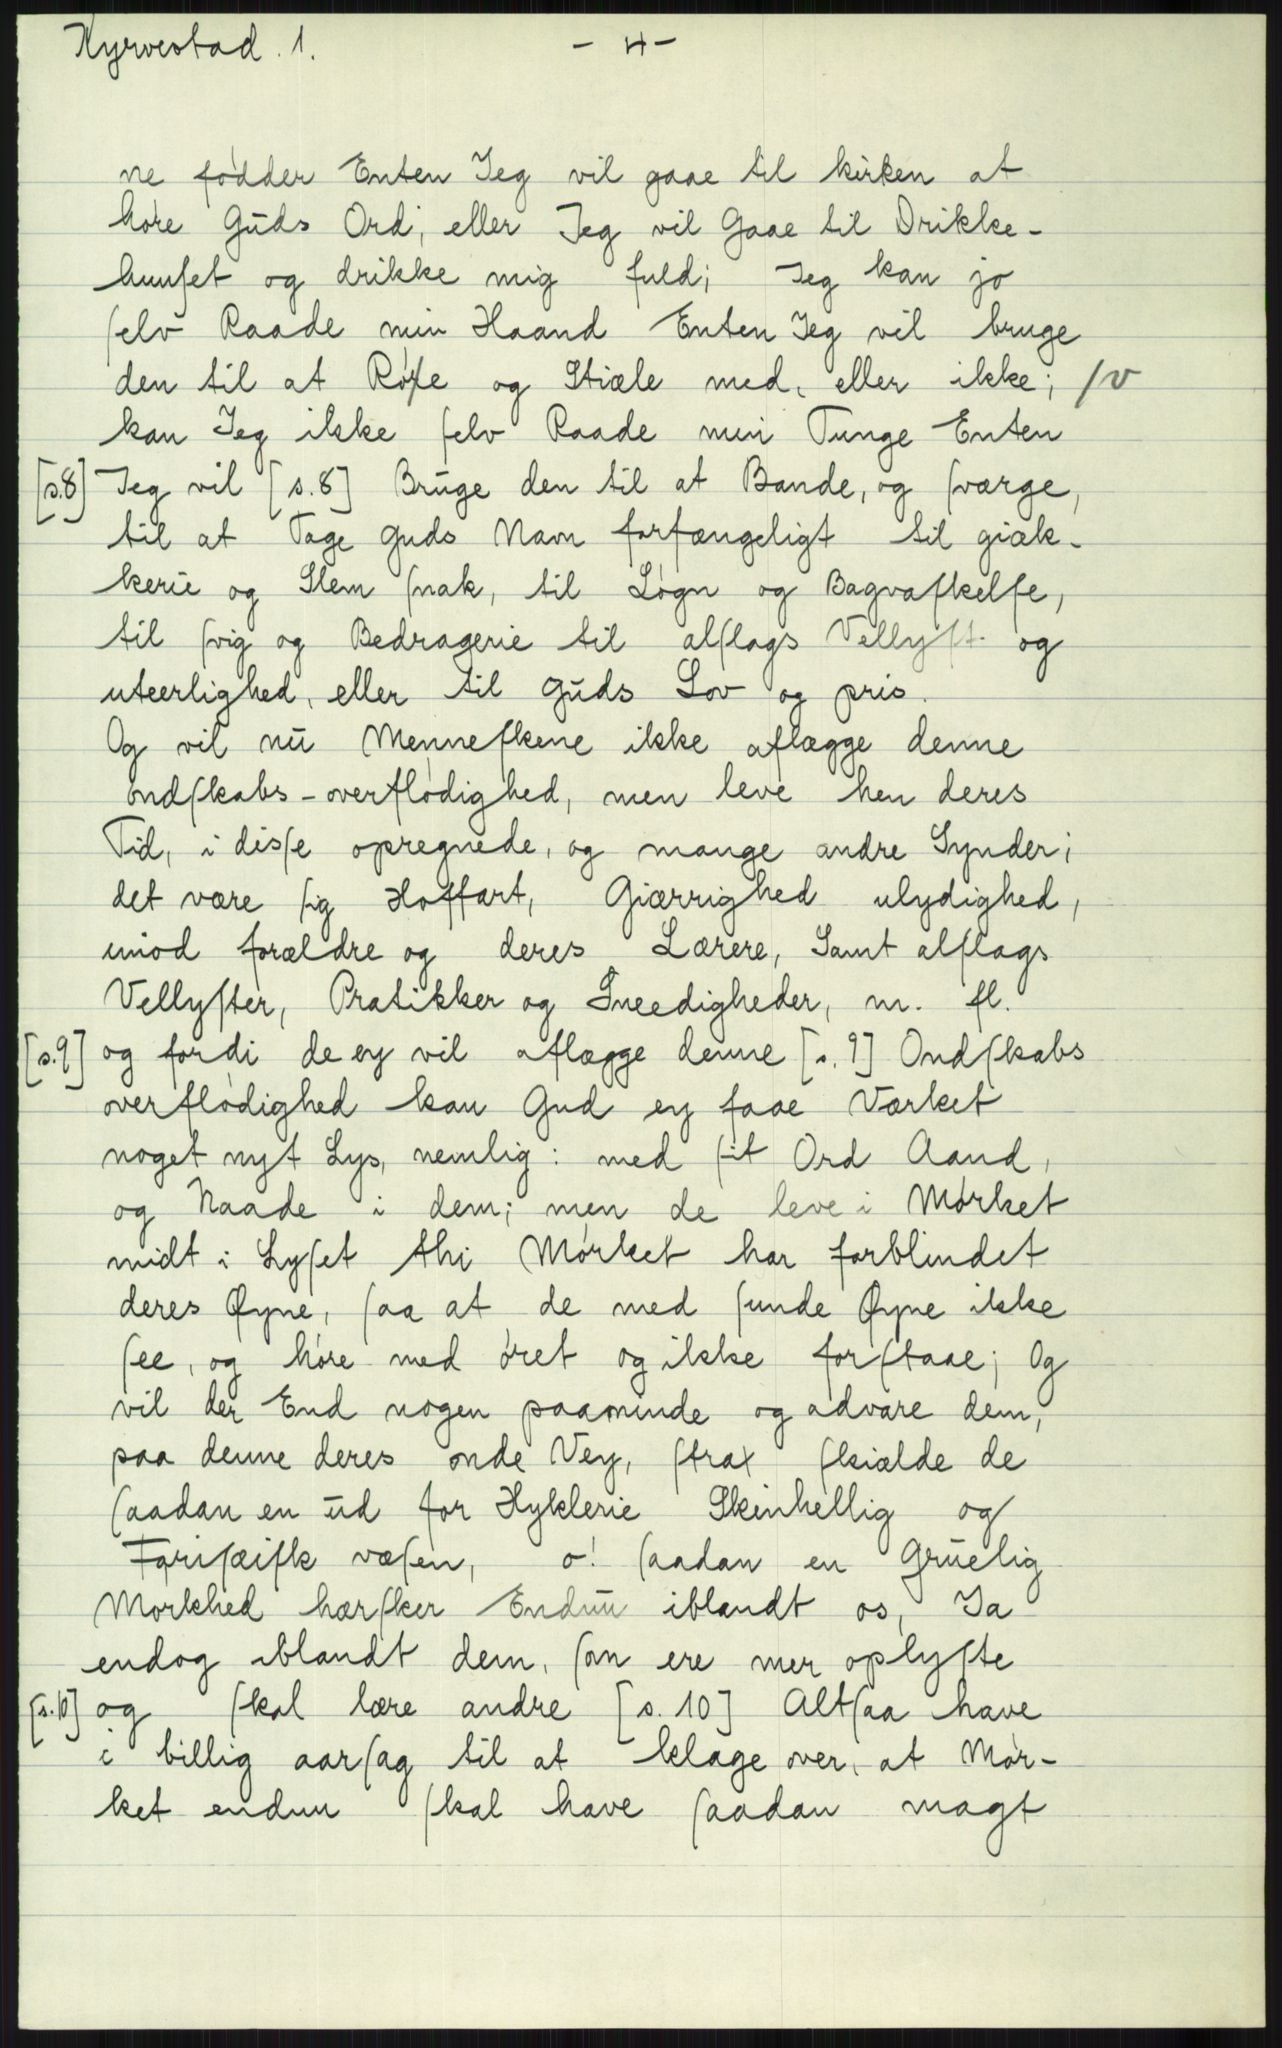 Hyrvestad. 1. - 4 -
ne fødder Enten Jeg vil gaae til kirken at
høre Gūds Ord, eller Jeg vil Gaae til Drikke-
huuſet og drikke mig fuld; Jeg kan jo
ſelv Raade min Haand Enten Jeg vil bruge
den til at Røfe og Stiæle med, eller ikke; /v
kan Jeg ikke ſelv Raade min Tunge Enten
[s.8] Jeg vil [s.8] Brūge den til at Bande, og ſværge,
til at Tage guds Navn forfængeligt til giæk-
kerie og Slem ſnak, til Løgn og Bagvaſkelſe,
til ſvig og Bedragerie til alſlags Vellyſt og
uteerlighed, eller til gūds Lov og pris.
Og vil nū Menneſkene ikke aflægge denne
ondſkabs-overflødighed, men leve hen deres
Tid, i disſe opregnede, og mange andre Synder;
det være ſig Hoffart, Giærrighed ulydighed,
imod forældre og deres Lærere, Samt alſlags
Vellyſter, Pratikker og Sneedigheder, m. fl.
[s.9] og fordi de ey vil aflægge denne [s.9] Ondſkabs
overflødighed kan Gud ey faae Værket
noget nyt Lys, nemlig: med ſit Ord Aand,
og Naade i dem; men de leve i Mørket
midt i Lyſet thi Mørket har forblindet
deres Øyne, ſaa at de med ſunde Øyne ikke
ſee, og høre med øret og ikke forſtaae; Og
vil der End nogen paaminde og advare dem,
paa denne deres onde Vey, ſtrax ſkiælde de
ſaadan en ūd for Hyklerie Skinhellig og
Fariſæiſk væſen, o! ſaadan en Grūelig
Morkhed hærſker Endnū iblandt os, Ja
endog iblandt dem, ſom ere mer oplyſte
[s.10] og ſkal lære andre [s. 10] Altſaa have
i billig aarſag til at klage over, at Mør-
ket endnu ſkal have ſaadan magt